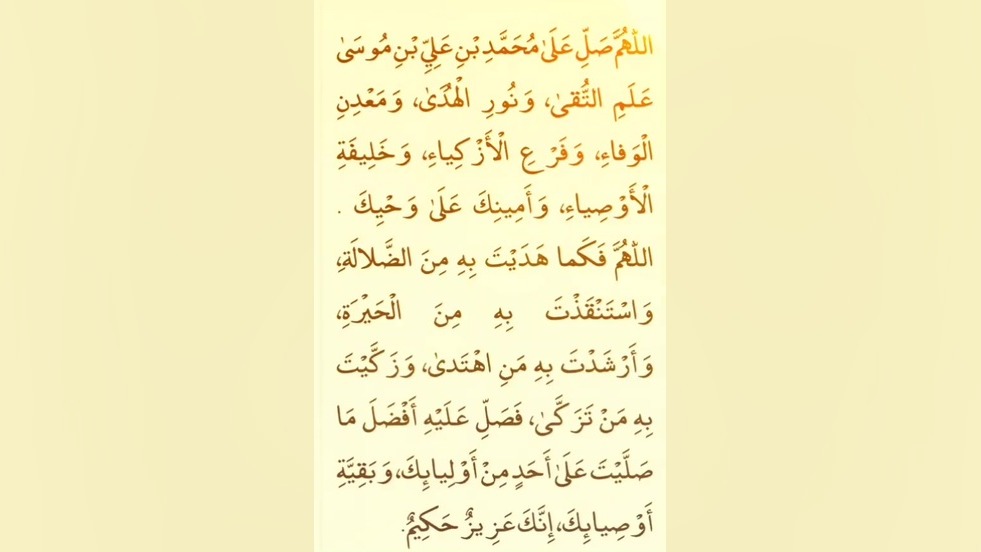 اللّٰهُمَّ صَلِّ عَلَىٰ مُحَمَّدِ بْنِ عَلِيِّ بْنِ مُوسَىٰ
عَلَمِ التُّقىٰ، وَنُورِ الْهُدَىٰ، وَمَعْدِنِ
الْوَفاءِ، وَفَرْعِ الْأَزْكِياءِ، وَخَلِيفَةِ
الْأَوْصِياءِ، وَأَمِينِكَ عَلَىٰ وَحْيِكَ .
اللّٰهُمَّ فَكَما هَدَيْتَ بِهِ مِنَ الضَّلالَةِ،
وَاسْتَنْقَذْتَ بِهِ مِنَ الْحَيْرَةِ،
وَأَرْشَدْتَ بِهِ مَنِ اهْتَدىٰ، وَزَكَّيْتَ
بِهِ مَنْ تَزَكَّىٰ، فَصَلِّ عَلَيْهِ أَفْضَلَ مَا
صَلَّيْتَ عَلَىٰ أَحَدٍ مِنْ أَوْلِيائِكَ، وَبَقِيَّةِ
أَوْصِيائِكَ، إِنَّكَ عَزِيزٌ حَكِيمٌ.